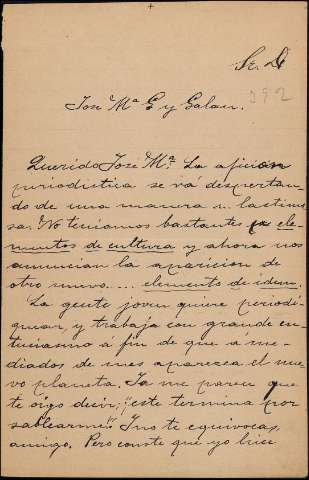 Sr. D
392
José Mª G y Galan.
Querido José Mª. La afición
periodistica se vá despertan-
do de una manera .. lastimo
sa. No teniamos bastantes ele-
mentos de cultura y ahora nos
anuncian la aparicion de
otro nuevo.... elemento de idem.
La gente joven quiere periodi-
quear, y trabaja con grande en-
tusiasmo á fin de que á me-
diados de mes aparezca el nue
vo planeta. Ya me parece que
te oigo decir; "este termina por
sablearme". Y no te equivocas,
amigo. Pero conste que yo hice